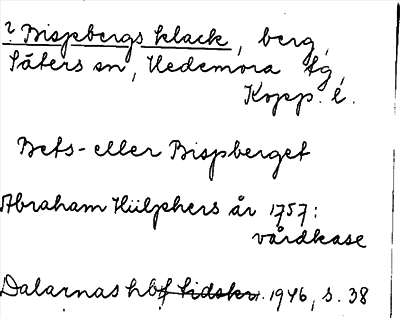 ? Bispbergs klack, berg,
Säters sn, Hedemora tg,
Kopp. l.
Bets- eller Bispberget
Abraham Hülphers år 1757:
vårdkase
Dalarnas hbf tidskr. 1946, s. 38